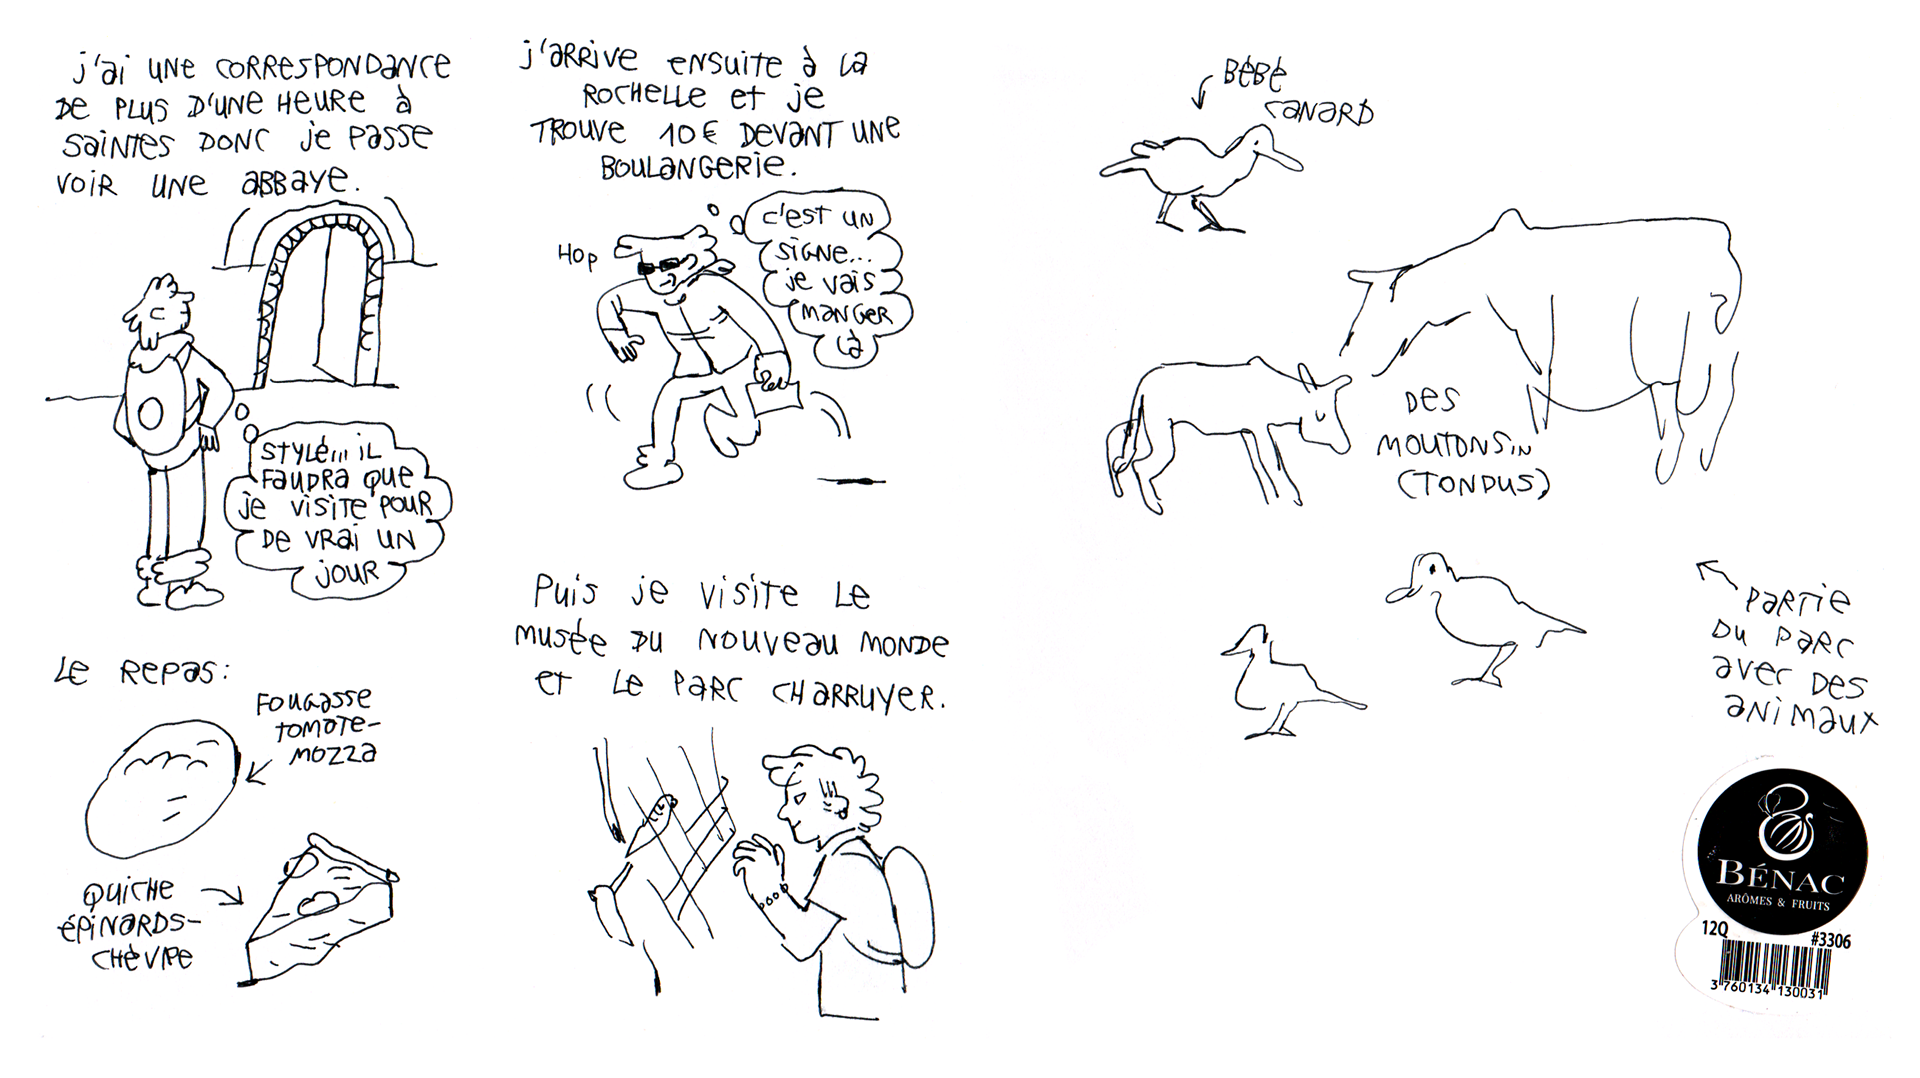 j'ai UNE CORRESPONDANCE
DE PLUS D'UNE HEURE à
SAINTES DONC je PASSE
VOIR UNE ABBAYE.
STYLÉ... iL
FAUDRA QUE
je VISITE POUR
DE VRAI UN
JOUR
LE REPAS:
FOUGASSE
TOMATE-
MOZZA
QUICHE
ÉPINARDS-
CHÈVRE
j'ARRIVE ENSUITE à LA
ROCHELLE ET je
TROUVE 10€ DEVANT UNE
BOULANGERIE.
HOP
C'EST UN
SIGNE...
je VAIS
MANGER
Là
PUIS je VISITE LE
MUSÉE DU NOUVEAU MONDE
ET LE PARC CHARRUYER.
BÉBÉ
CANARD
DES
MOUTONS...
(TONDUS)
PARTIE
DU PARC
AVEC DES
ANIMAUX
BÉNAC
ARÔMES & FRUITS
12Q #3306
3 760134 130031